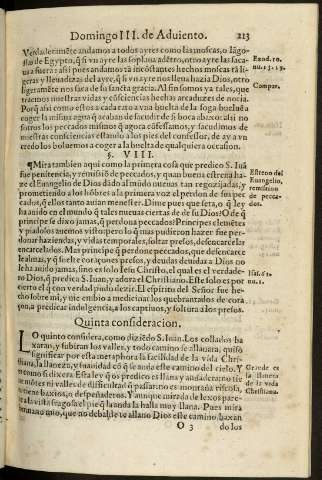 Domingo III. de Aduiento. 213
Verdaderamẽte andamos a todos ayres como las moscas, o lãgo-
stas de Egypto, q̃ si vn ayre las soplaua adẽtro, otro ayre las saca-
ua fuera: assi pues andamos tã incõstantes hechos moscas tã li-
geras y lleuadizas del ayre, q̃ si vn ayre nos lleua hazia Dios, otro
ligeramẽte nos saca de su sancta gracia. Al fin somos ya tales, que
traemos nuestras vidas y cõsciencias hechas arcaduzes de noria.
Pero q̃ assi como estos a cada vna buelta de la soga bueluẽ a
coger la misma agua q̃ acaban de sacudir de si boca abaxo: assi no
sotros los pecados mismos q̃ agora cõfessamos, y sacudimos de
nuestras consciencias estando a los pies del confessor, de ay a vn
credo los boluemos a coger a la buelta de qualquiera occasion.
Exod. 10.
nu. 13. 19.
Compar.
§. VIII.
¶Mira tambien aqui como la primera cosa que predico S. Iuã
fue penitencia, y remissiõ de peccados, y quan buena estrena ha-
ze el Euangelio de Dios dãdo al mũdo nueuas tan regozijadas, y
prometiendo a los hõbres a la primera voz el perdon de sus pec-
cados, q̃ ellos tanto auian menester. Dime pues que seta, o q̃ ley
ha auido en el mundo q̃ tales nueuas ciertas de de su Dios? O de q̃
principe se dixo jamas, q̃ perdona peccados? Principes clemẽtes
y piadosos auemos visto, pero lo q̃ mas pudieron hazer fue per-
donar haziendas, y vidas temporales, soltar presos, desencarcelar
encarcelados. Mas principe q̃ perdone peccados, que desencarcele
las almas, y q̃ suelte coraçones presos, y deudas deuidas a Dios no
le ha auido jamas, sino es solo Iesu Christo, el qual es el verdade-
ro Dios, q̃ predica S. Iuan, y adora el Christiano. Este solo es por
cierto el q̃ con verdad pudo dezir. El espiritu del Señor fue he-
cho sobre mi, y me embio a medicinar los quebrantados de cora-
çon, a predicar indulgencia, a los captiuos, y soltura a los presos.
Estrena del
Euangelio,
remission
de pecca-
dos.
Isai. 61.
nu. 1.
Quinta consideracion.
LO quinto considera, como diziẽdo S. Iuan. Los collados ba
xaran, y subiran los valles, y todo camino se allanara, quiso
significar por esta metaphora la facilidad de la vida Chri-
stiana, la llaneza, y suauidad cõ q̃ se anda este camino del cielo. Y
como si dixera. Esta ley q̃ os predico es llana y andadera: no tie
ne mõtes ni valles de difficultad q̃ passar: no es montaña riscosa,
ni tiene baxios, o despeñaderos. Y aunque mirada de lexos pare-
ce a la vista fragosa el pie q̃ la anda la halla muy llana. Pues mira
hermano mio, que no debalde te allano Dios este camino, baxan
Grande es
la llaneza
de la vida
Christiana.
O 3 do los